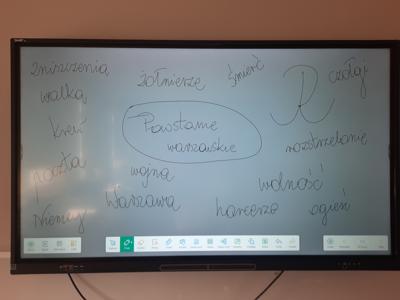 zniszczenia
żołnierze
śmierć
czołgi
walka
krew
Powstanie
warszawskie
rozstrzelanie
poczta
wojna
wolność
Niemcy
Warszawa
harcerze
ogień